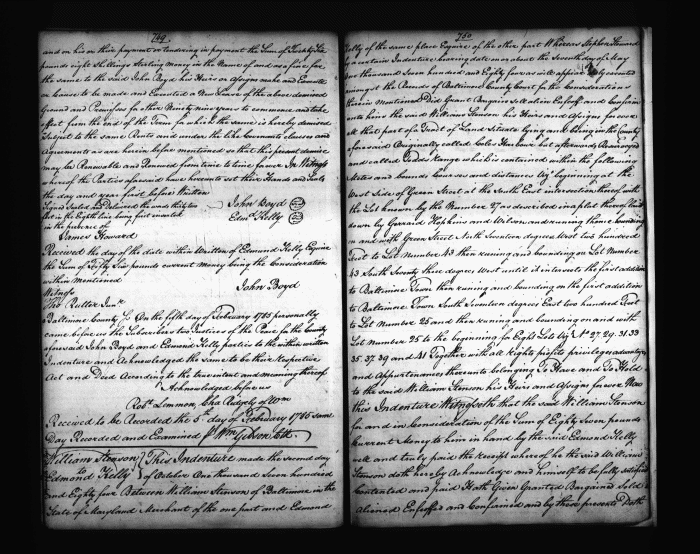 749
and on his or their payment or tendering in payment the Sum of Twenty Six
pounds eight Shillings Sterling money in the Name of and as a fine for
the same to the said John Boyd his Heirs or assigns make and Execute
or Cause to be made and Executed a New Lease of the above demised
Ground and Premises for other Ninety nine years to commence and take
effect from the end of the Term for which the same is hereby demised
Subject to the same Rents and under the like Covenants clauses and
Agreements as are herein before mentioned so that this present demise
may be Renewable and Renewed from time to time forever In Witness
whereof the Parties aforesaid have hereunto set their Hands and Seals
the day and year first before Written
Signed Sealed and Delivered the words thirty two
in the Eighth line being first inserted
in the presence of
John Boyd
Edmd Kelly
James Howard
Received the day of the date within Written of Edmund Kelly Esquire
the Sum of Fifty Six pounds current Money being the Consideration
within Mentioned
John Boyd
Witness
Tho Rutter Junr
Baltimore County Sc On the fifth day of February 1785 personally
came before us the Subscribers two Justices of the Peace for the County
aforesaid John Boyd and Edmund Kelly parties to the within written
Indenture and Acknowledged the same to be their Respective
Act and Deed According to the true intent and meaning thereof
Acknowledged before us
Robt Lemmon, Cha Ridgely of Wm
Received to be Recorded the 5th day of February 1785 same
Day Recorded and Examined Wm Gibson Clk
William Stenson
to
Edmond Kelly
This Indenture made the second day
of October One thousand Seven hundred
and Eighty four Between William Stenson of Baltimore in the
State of Maryland Merchant of the one part and Edmond
750
Kelly of the same place Esquire of the other part Whereas Stephen Steward
by a certain Indenture bearing date on or about the Seventh day of May
one thousand Seven hundred and Eighty four as will appear
amongst the Records of Baltimore County Court for the Considerations
therein Mentioned Did Grant Bargain sell alien Enfeoff and Confirm
unto him the said William Stenson his Heirs and Assigns forever
all that part of a Tract of Land Situate lying and being in the County
aforesaid Originally called Coles Harbour but afterwards Resurveyed
and called Todds Range which is contained within the following
Metes and bounds Courses and distances Viz beginning at the
West Side of Green Street at the South East intersection thereof with
the Lot known by the Number 27 as described in a plat thereof laid
down by Gerrard Hopkins and Wilson and running thence bounding
on and with Green Street North Seventeen degrees West two hundred
Feet to Lot Number 43 then runing and bounding on Lot Number
43 South Seventy three degrees West until it intersects the first addition
to Baltimore Town then runing and bounding on the first addition
to Baltimore Town South Seventeen degrees East two hundred Feet
to Lot Number 25 and then runing and bounding on and with
Lot Number 25 to the beginning for Eight Lots Viz No 27. 29. 31. 33
35. 37. 39 and 41 Together with all Rights profits priviledges advantages
and Appurtenances thereunto belonging To Have and To Hold
to the said William Stenson his Heirs and Assigns forever Now
this Indenture Witnesseth that the said William Stenson
for and in Consideration of the Sum of Eighty Seven pounds
Current Money to him in hand by the said Edmond Kelly
well and truly paid the Receipt whereof he the said William
Stenson doth hereby Acknowledge and himself to be fully satisfied
Contented and paid Hath Given Granted Bargained Sold
Aliened Enfeoffed and Confirmed and by these presents Doth